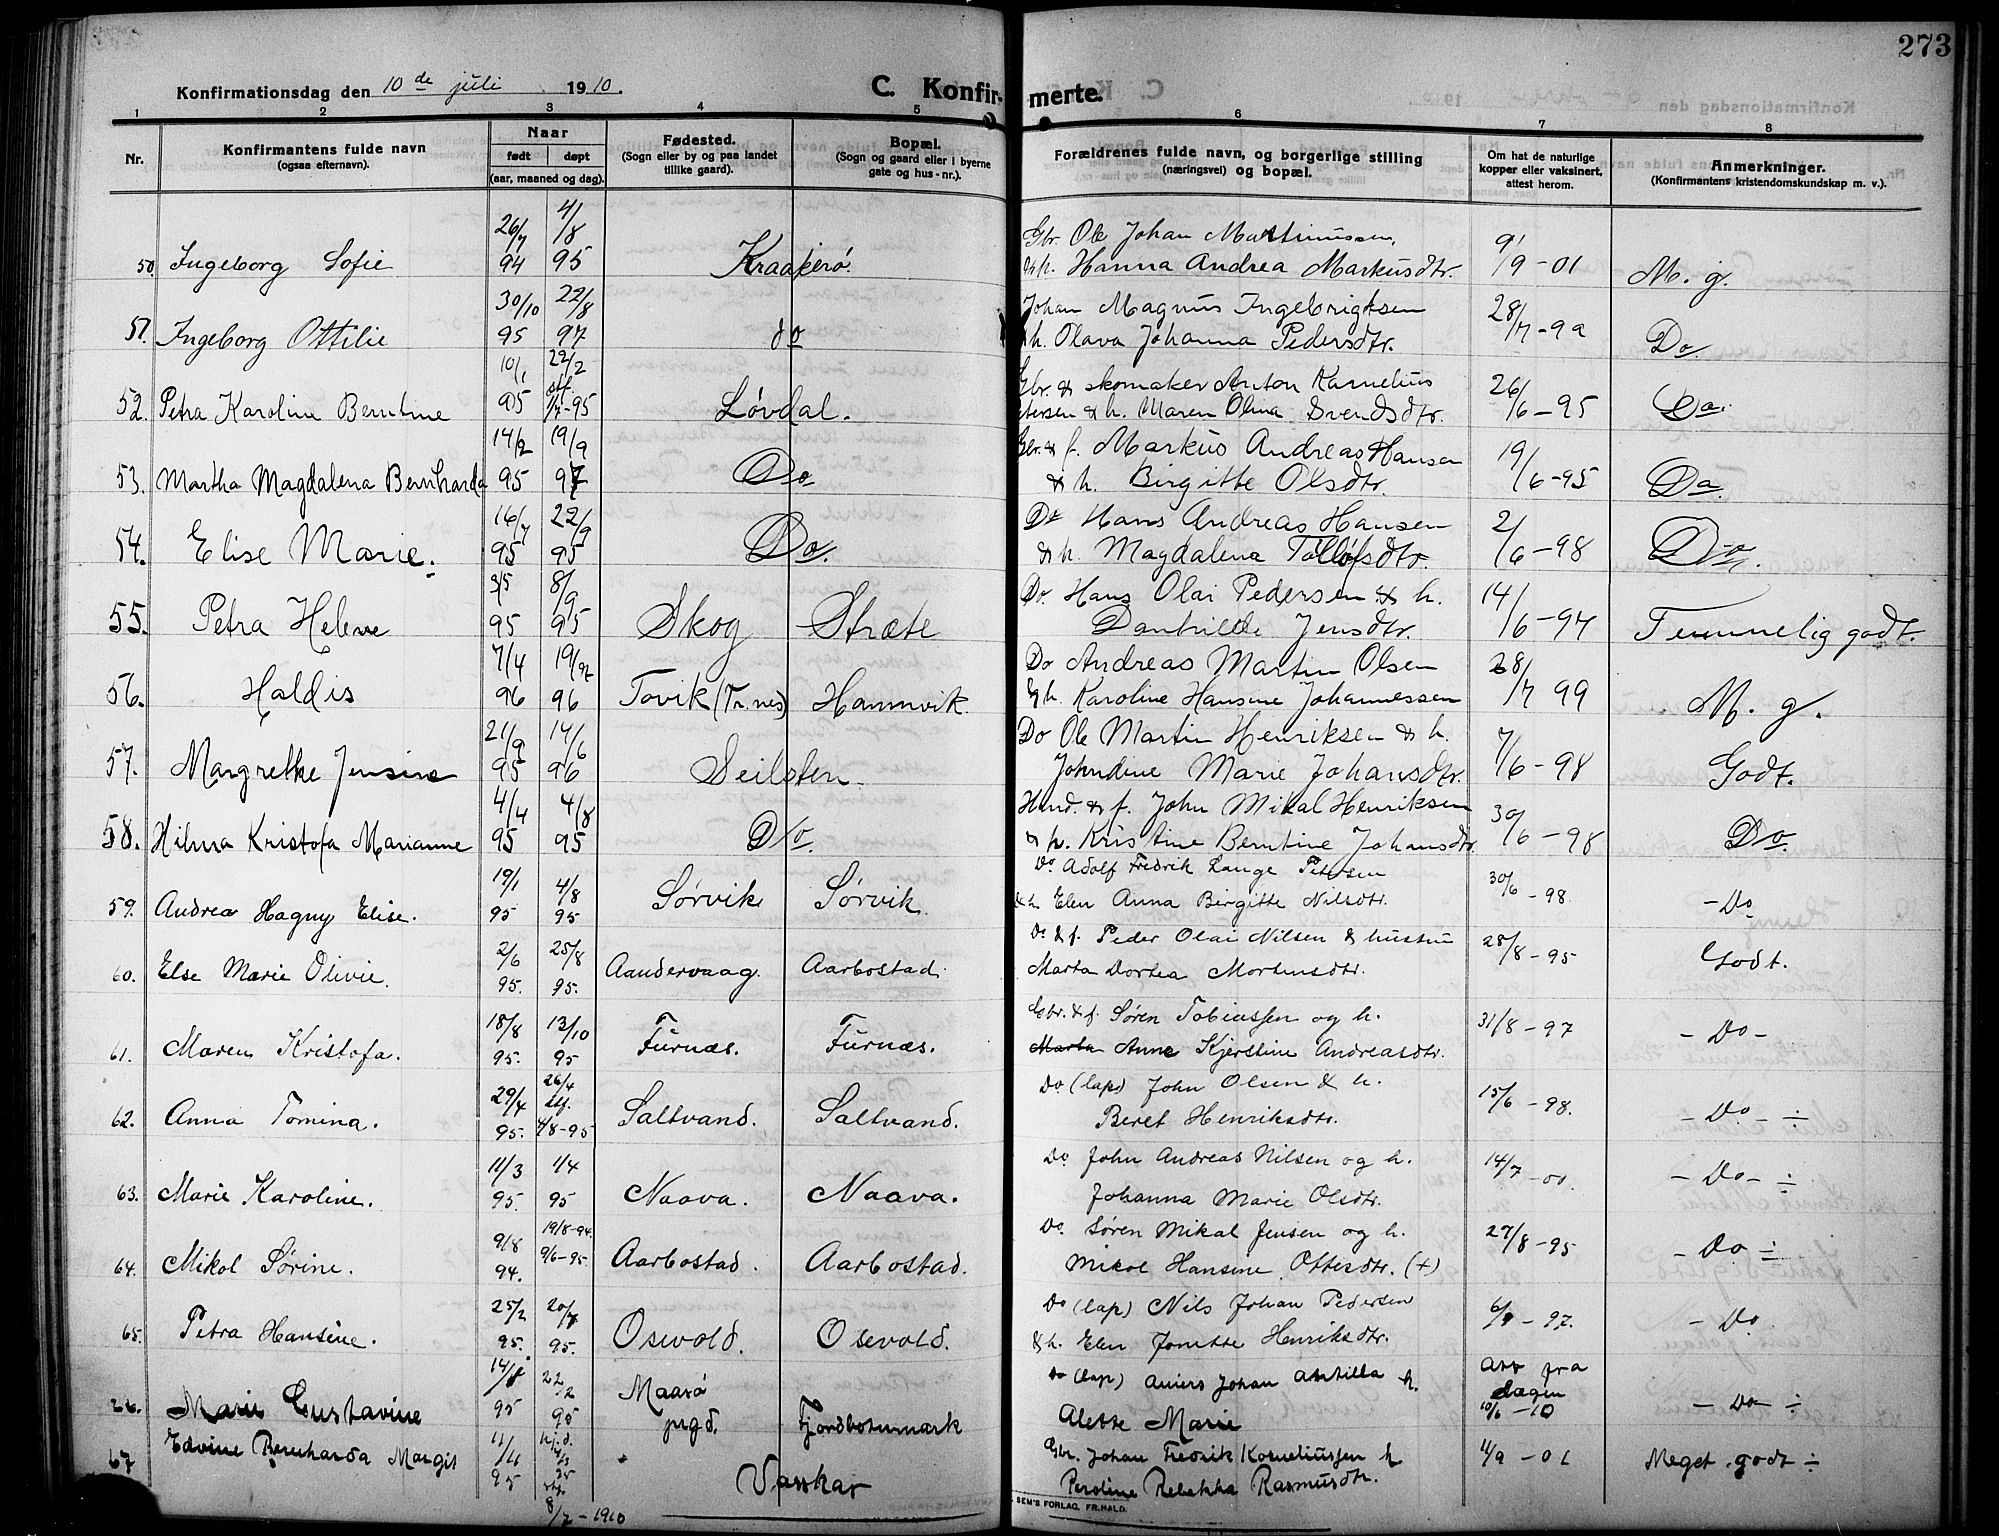 273
Konfirmationsdag den 10 de juli 1910.
C. Konfirmerte.
1 2 3 4 5 6 7 8
Nr.
Konfirmantens fulde navn
(ogsaa efternavn).
Naar
født døpt
(aar, maaned og dag).
Fødested.
(Sogn eller by og paa landet
tillike gaard).
Bopæl.
(Sogn og gaard eller i byerne
gate og hus-nr.).
Forældrenes fulde navn, og borgerlige stilling
(næringsvei) og bopæl.
Om hat de naturlige
kopper eller vaksinert,
attest herom.
Anmerkninger.
(Konfirmantens kristendomskundskap m. v.).
26/7 4/8 Gbr. Ole Johan Martinussen,
50. Ingeborg Sofie 94 95 Kraakerø. & h. Hanna Andrea Markusdtr. 9/9-01 M. g.
30/10 22/8 Johan Magnus Ingebrigtsen
51. Ingeborg Ottilie 95 97 do h. Olava Johanna Pedersdtr. 28/7-99 Do
10/1 22/2 Gbr. & skomaker Anton Kornelius
52. Petra Karoline Berntine 95 stf. 1/7-95 Løvdal. Petersen & h. Maren Olina Svendsdtr. 26/6-95 Do.
14/2 19/9 Gbr. & f. Markus Andreas Hansen
53. Martha Magdalena Bernharda 95 97 Do & h. Birgitte Olsdtr. 19/6-95 Do.
16/7 22/9 Do Hans Andreas Hansen
54. Elise Marie. 95 95 Do. & h. Magdalena Tollofsdtr. 2/6-98 Do.
3/5 8/9 Do. Hans Olai Pedersen & h.
55. Petra Helene 95 95 Skog Stræte Danhilde Jensdtr. 14/6-97 Temmelig godt.
7/4 19/12 Do Andreas Martin Olsen
56. Haldis 96 96 Tovik (Tr.nes) Hamnvik. & h. Karoline Hansine Johannessen 28/7 99 M. g.
21/9 14/6 Do Ole Martin Henriksen & h.
57. Margrethe Jensine 95 96 Seilsten. Johndine Marie Johansdtr. 7/6-98 Godt.
4/4 4/8 Hmd. & f. John Mikal Henriksen
58. Hilma Kristofa Marianne 95 95 Do. & h. Kristine Berntine Johansdtr. 30/6-98 Do.
19/1 4/8 Do. Adolf Fredrik Lange Petersen
59. Andrea Hagny Elise. 95 95 Sørvik Sørvik. & h. Elen Anna Birgitte Nilsdtr. 30/6-98. - Do
2/6 25/8 Do & f. Peder Olai Nilsen & hustru
60. Else Marie Olivie. 95. 95. Aandervaag. Aarbostad. Marta Dortea Mortensdtr. 28/8-95 Godt.
18/8 13/10 Gbr. & f. Søren Tobiassen og h.
61. Maren Kristofa. 95. 95 Furnæs. Furnæs. Marta Anne Kjerstine Andreasdtr. 31/8-97 - Do -
29/4 26/4 stf. Do (lap) John Olsen & h.
62. Anna Tomina. 95. 4/8-95 Saltvand. Saltvand. Beret Henriksdtr. 15/6-98. - Do - ÷
11/3 1/4 Do. John Andreas Nilsen og h.
63. Marie Karoline. 95. 95 Naava. Naava. Johanna Marie Olsdtr. 14/7-00. - Do - ÷
9/8 19/8-94. Do. Søren Mikal Jensen og h.
64. Mikol Sørine. 94. 9/6-95. Aarbostad. Aarbostad. Mikol Hansine Ottesdtr. (+) 27/8-95 - Do ÷
25/2 20/7 Do (lap) Nils Johan Pedersen
65. Petra Hansine. 95. 95. Osevold. Osevold. & h. Elen Jonette Henriksdtr. 6/9-97. - Do.
Do (lap) Johan h. att fra
Marie Gustavine 95 22/2 95 Maasø prgd. Fjordbotnmark Alette Marie dagen 10/6-10 - Do - ÷
67 Edvine Bernharda Margit 11/4 95 hj.d. Vasskar Gbr. Johan Fredrik Korneliussen & h. 11/9-01 Meget godt ÷
Peroline Rebekka Rasmusdtr.
8/7-1910
SEM'S FORLAG, FR.HALD.